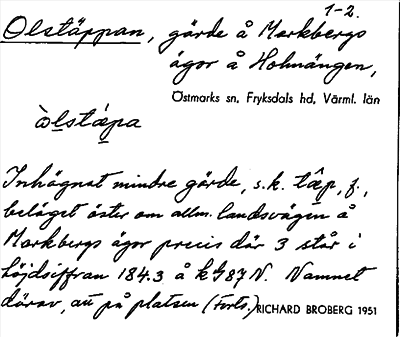 1-2.
Olstäppan, gärde å Markbergs
ägor å Holmängen,
Östmarks sn, Fryksdals hd, Värml. län
òlstæpa
Inhägnat mindre gärde, s.k. tæ̂p, f.,
beläget öster om allm. landsvägen å
Markbergs ägor precis där 3 står i
höjdsiffran 184.3 å kbl 87 N. Namnet
därav, att på platsen (Forts.) RICHARD BROBERG 1951